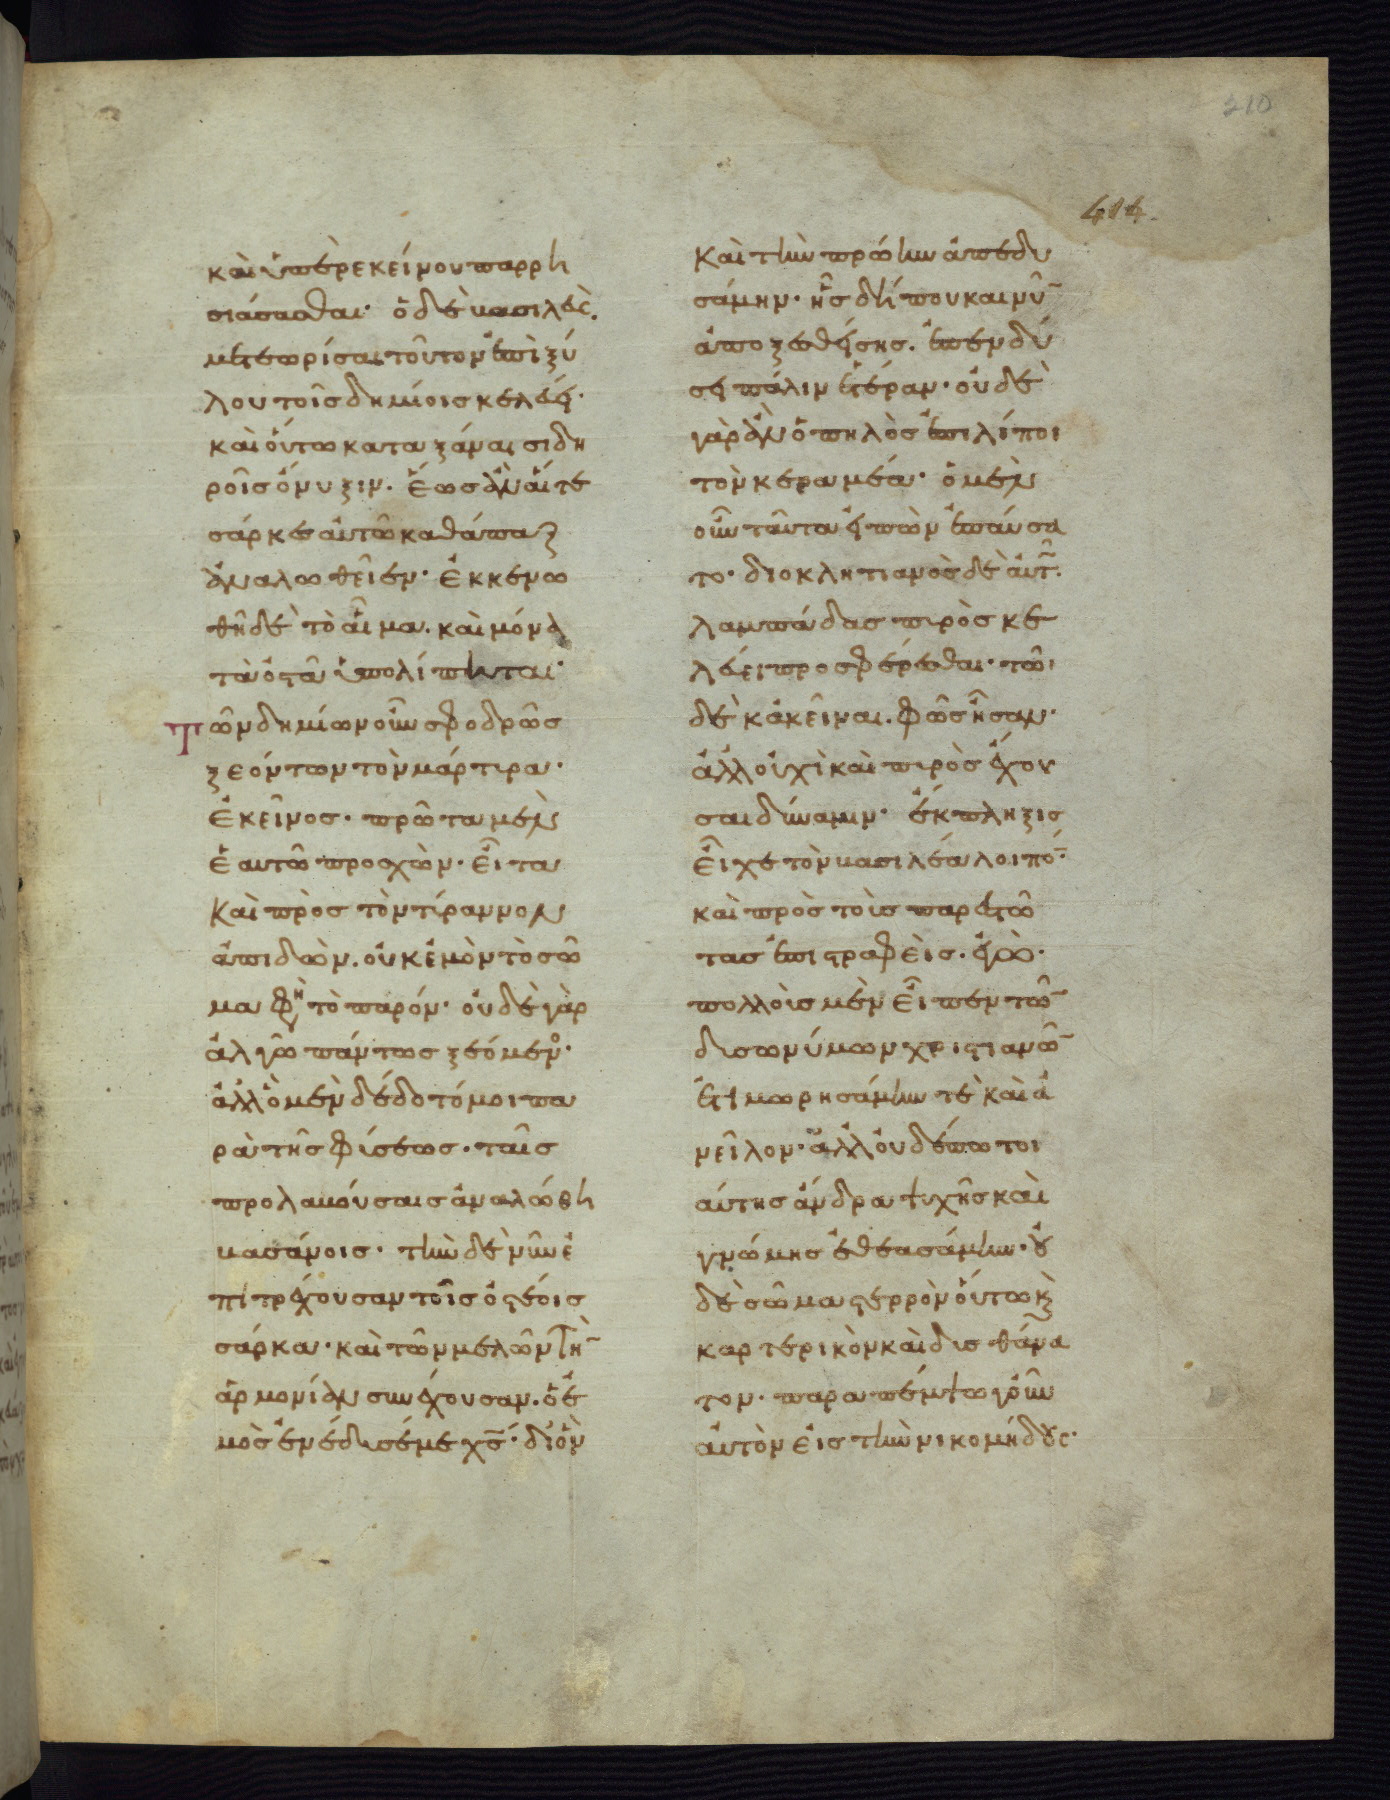 210
414.
καὶ ὑπὲρ ἐκείνου παρρη
σιάσασθαι· ὁ δὲ βασιλεὺς.
μετεωρίσαι τοῦτον ἐπὶ ξύ
λου τοῖς δημίοις κελεύει·
καὶ οὕτω καταξάναι σιδη
ροῖς ὄνυξιν. ἕως ἂν αἵ τε
σάρκες αὐτῶ καθάπαξ
ἀναλωθεῖεν· ἐκκενω
θῆ δὲ τὸ αἷμα. καὶ μόνα
τὰ ὀστᾶ ὑπολίπηται·
Τῶν δημίων οὖν σφοδρῶς
ξεόντων τὸν μάρτυρα·
ἐκεῖνος· πρῶτα μὲν
ἑαυτῶ προσχὼν· εἶτα
καὶ πρὸς τὸν τύραννον
ἀπιδὼν. οὐκ ἐμὸν τὸ σῶ
μα φη τὸ παρόν· οὐδὲ γὰρ
ἀλγῶ πάντως ξεόμενος·
ἀλλ' ὃ μὲν δέδοτό μοι πα
ρὰ τῆς φύσεως· ταῖς
προλαβούσαις ἀναλώθη
βασάνοις· τὴν δὲ νῦν ἐ
πιτρέχουσαν τοῖς ὀστέοις
σάρκα· καὶ τῶν μελῶν τὴν
ἁρμονίαν συνέχουσαν. ὁ ἐ
μὸς ἐνέδυσέ με χς· δι' ὃν
καὶ τὴν πρώην ἀπεδυ
σάμην· ἧς δήπου καὶ νῦν
ἀποξεσθείσης. ἐπενδύ
σει πάλιν ἑτέραν· οὐδὲ
γὰρ ἂν ὁ πηλὸς ἐπιλίποι
τὸν κεραμέα· ὁ μὲν
οὖν ταῦτα εἰπὼν ἐπαύσα
το· διοκλητιανὸς δὲ αὐτ.
λαμπάδας πυρὸς κε
λεύει προσφέρεσθαι· τῶι
δὲ κἀκεῖναι. φῶς ἦσαν·
ἀλλ' οὐχὶ καὶ πυρὸς ἔχου
σαι δύναμιν· ἔκπληξις
εἶχε τὸν βασιλέα λοιπόν·
καὶ πρὸς τοὺς παρεστῶ
τας ἐπιστραφεὶς. ἐγὼ·
πολλοὺς μὲν εἶπεν τῶν
δυσωνύμων χριστιανῶν
ἐτιμωρησάμην τὲ καὶ ἀ
νεῖλον· ἀλλ' οὐδέπω τοι
αύτης ἄνδρα ψυχῆς καὶ
γνώμης ἐθεασάμην· οὐ
δὲ σῶμα στερρὸν οὕτω κ
καρτερικὸν καὶ δυσθάνα
τον· παραπέμψω γοῦν
αὐτὸν εἰς τὴν νικομήδους·